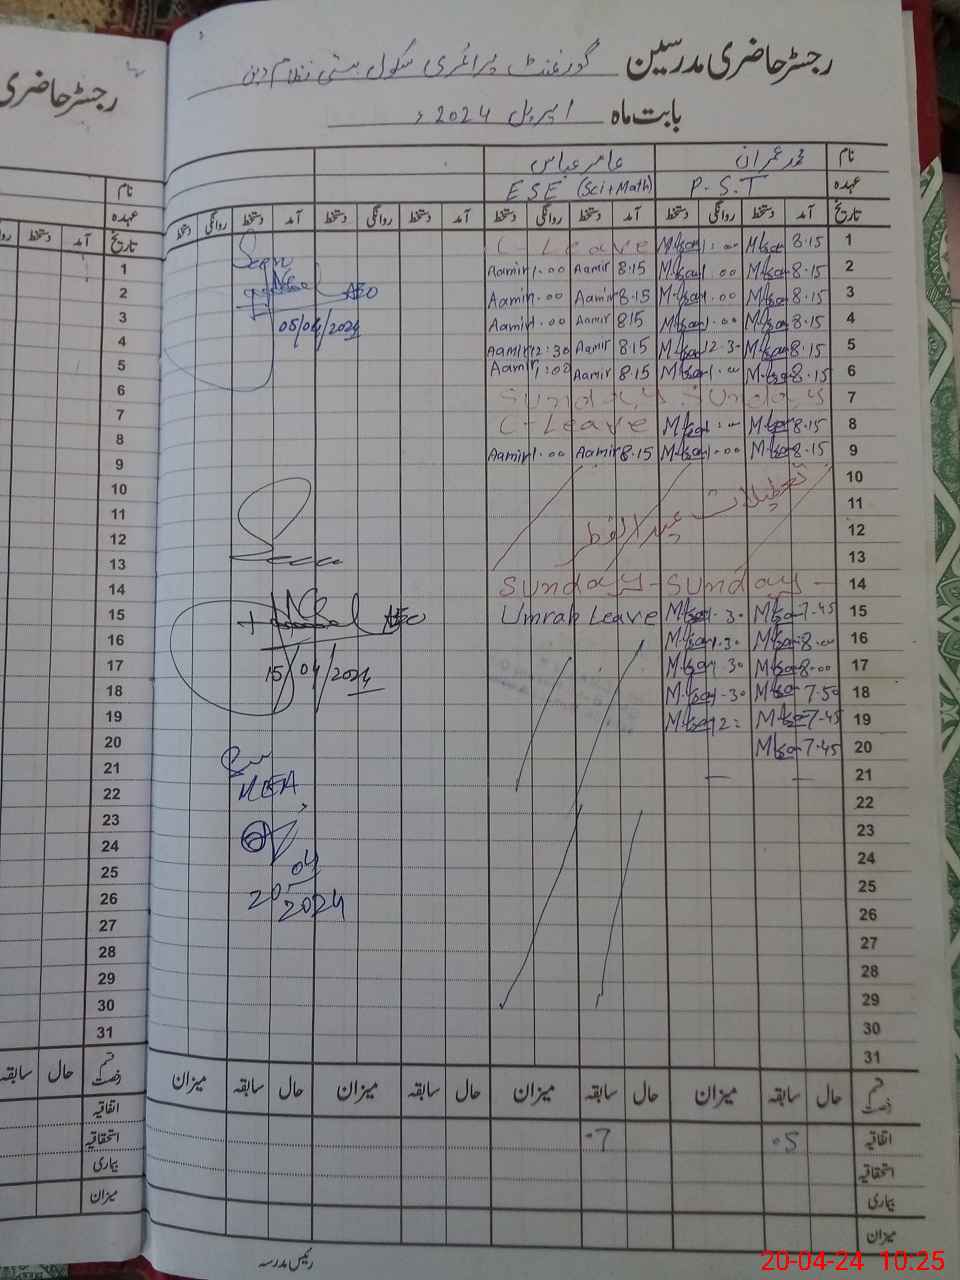 رجسٹر حاضری مدرسین گورنمنٹ پرائمری سکول بستی نظام دین
بابت ماہ اپریل 2024ء
نام محمد عمران عامر عباس
عہدہ P.S.T ESE (Sci+Math)
تاریخ آمد دستخط روانگی دستخط آمد دستخط روانگی دستخط آمد دستخط روانگی دستخط آمد دستخط روانگی دستخط
1 8.15 1.00 C-Leave
2 8.15 1.00 8.15 Aamir 1.00 Aamir
3 8.15 1.00 8.15 Aamir 1.00 Aamir
4 8.15 1.00 815 Aamir 1.00 Aamir
5 8.15 12.3 815 Aamir 12:30 Aamir
6 8.15 1.00 8.15 Aamir 1:00 Aamir
7 Sunday Sunday
8 8.15 1.00 C-Leave
9 8.15 1.00 8.15 Aamir 1.00 Aamir
10
11 تعطیلات عید الفطر
12
13
14 Sunday-Sunday-
15 7.45 1.30 Umrah Leave
16 8.00 1.30
17 8.00 1.30
18 7.50 1.30
19 7.45 12:
20 7.45
21 — —
22
23
24
25
26
27
28
29
30
31
AEO
05/04/2024
AEO
15/04/2024
MEA
20-04
2024
قسم رخصت حال سابقہ میزان حال سابقہ میزان حال سابقہ میزان حال سابقہ میزان
اتفاقیہ 05 07
استحقاقیہ
بیماری
میزان
رئیس مدرسہ
رجسٹر حاضری
نام
عہدہ
تاریخ آمد دستخط
1
2
3
4
5
6
7
8
9
10
11
12
13
14
15
16
17
18
19
20
21
22
23
24
25
26
27
28
29
30
31
قسم رخصت حال سابقہ
اتفاقیہ
استحقاقیہ
بیماری
میزان
20-04-24 10:25